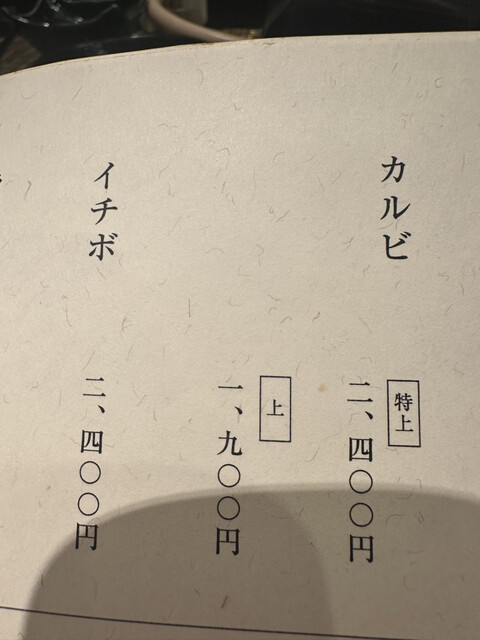 カルビ
特上
二、四〇〇円
上
一、九〇〇円
イチボ
二、四〇〇円